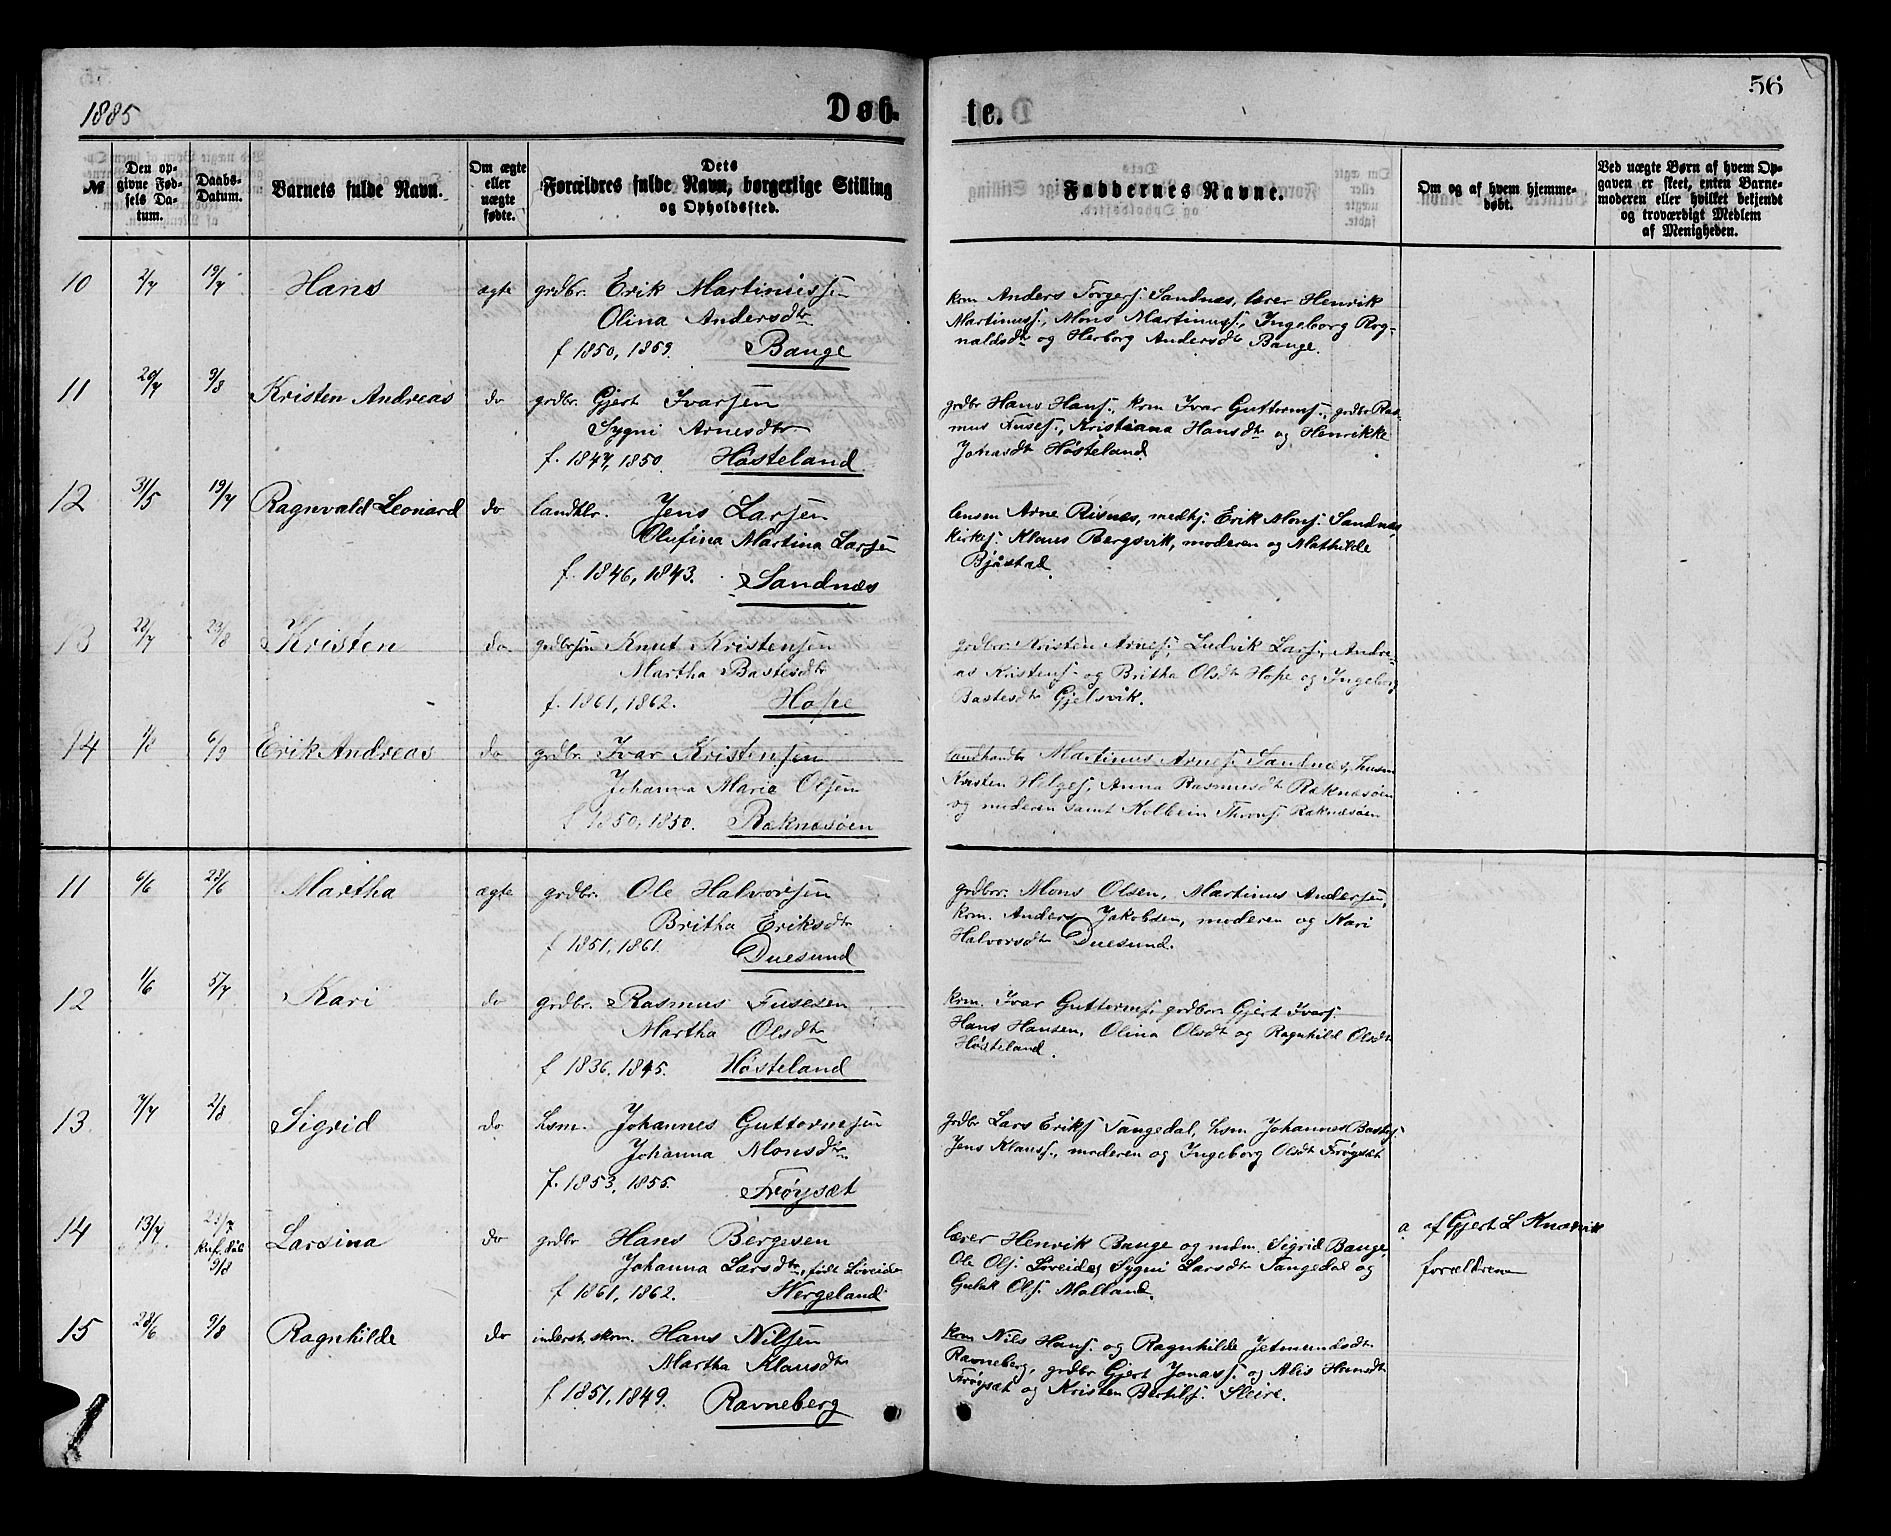 56
1885
Døb-
te.
№
Den op-
givne Fød-
sels Da-
tum.
Daabs-
Datum.
Barnets fulde Navn.
Om ægte
eller
uægte
fødte.
Dets
Forældres fulde Navn, borgerlige Stilling
og Opholdssted.
Faddernes Navne.
Om og af hvem hjemme-
døbt.
Ved uægte Børn af hvem Op-
gaven er skeet, enten Barne-
moderen eller hvilket bekjendt
og troværdigt Medlem
af Menigheden.
10 2/7 19/7 Hans ægte grdbr. Erik Martinussen
Olina Andersdtr
f 1850, 1859. Bauge
krm Anders Torgers. Sandnæs, lærer Henrik
Martinuss., Mons Martinuss., Ingeborg Rog-
naldsdtr og Herborg Andersdtr Bauge.
11 20/7 9/8 Kristen Andreas do grdbr. Gjert Ivarsen
Sygni Arnesdtr
f. 1847, 1850. Høsteland
grdbr Hans Hans., krm Ivar Guttorms., grdbr Ras-
mus Fuses., Kristiana Hansdtr og Henrikke
Johasdtr Høsteland.
12 31/5 19/7 Ragnvald Leonard do landhlr. Jens Larsen
Olufina Martina Larsen
f. 1846, 1843. Sandnæs
lensm Arne Risnæs, medhj. Erik Mons. Sandnæs,
kirkes. Klaus Bergsvik, moderen og Mathilde
Bjåstad.
13 22/7 23/8 Kristen do grdbrsøn Knut Kristensen
Martha Bastesdtr
f. 1861, 1862. Hope
grdbr. Kristen Arnes., Ludvik Lars., Andre-
as Kristens. og Britha Olsdtr Hope og Ingeborg
Bastesdtr Gjelsvik.
14 1/8 6/9 Erik Andreas do grdbr. Ivar Kristensen
Johanna Marie Olsen
f 1850, 1850. Ræknæsøen
landhandlr Martinus Arnes. Sandnæs, husm
Kristen Helges., Anna Rasmusdtr Ræknæsøen
og moderen samt Kolbein Thoms. Ræknæsøen
11 6/6 28/6 Martha ægte grdbr. Ole Halvorsen
Britha Eriksdtr
f 1851, 1861. Duesund
grdbrr. Mons Olsen, Martinus Andersen,
krm. Anders Jakobsen, moderen og Kari
Halvorsdtr Duesund.
12 1/6 5/7 Kari do grdbr. Rasmus Fusesen
Martha Olsdtr
f 1836, 1845. Høsteland
krm. Ivar Guttorms., grdbrr Gjert Ivars.
Hans Hansen, Olina Olsdtr og Ragnhild Olsdtr
Høsteland.
13. 7/7 2/8 Sigrid do hsm. Johannes Guttormsen
Johanna Monsdtr
f. 1853, 1855. Frøysæt
grdbr Lars Eriks. Tangedal, hsm Johannes Bastes.
Jens Klauss., moderen og Ingeborg Olsdtr Frøysæt
14 13/7 23/7 Larsina do grdbr Hans Børgesen
9/8 Johanna Larsdtr, født Løveide
f 1861, 1862. Hergeland
lærer Henrik Bauge og mdm. Sigrid Bauge,
Ole Ols. Løveide, Sygni Larsdtr Tangedal og
Gulak Ols. Molland.
a af Gjert L Knævik
forældrene
15 28/6 9/8 Ragnhilde do inderst, skom. Hans Nilsen
Martha Klausdtr
f 1851, 1849. Ravneberg
krm Nils Hans. og Ragnhilde Jetmundsdtr
Ravneberg, grdbr Gjert Jonass. og Alis Hansdtr
Frøysæt og Kristen Bertils. Sleire.